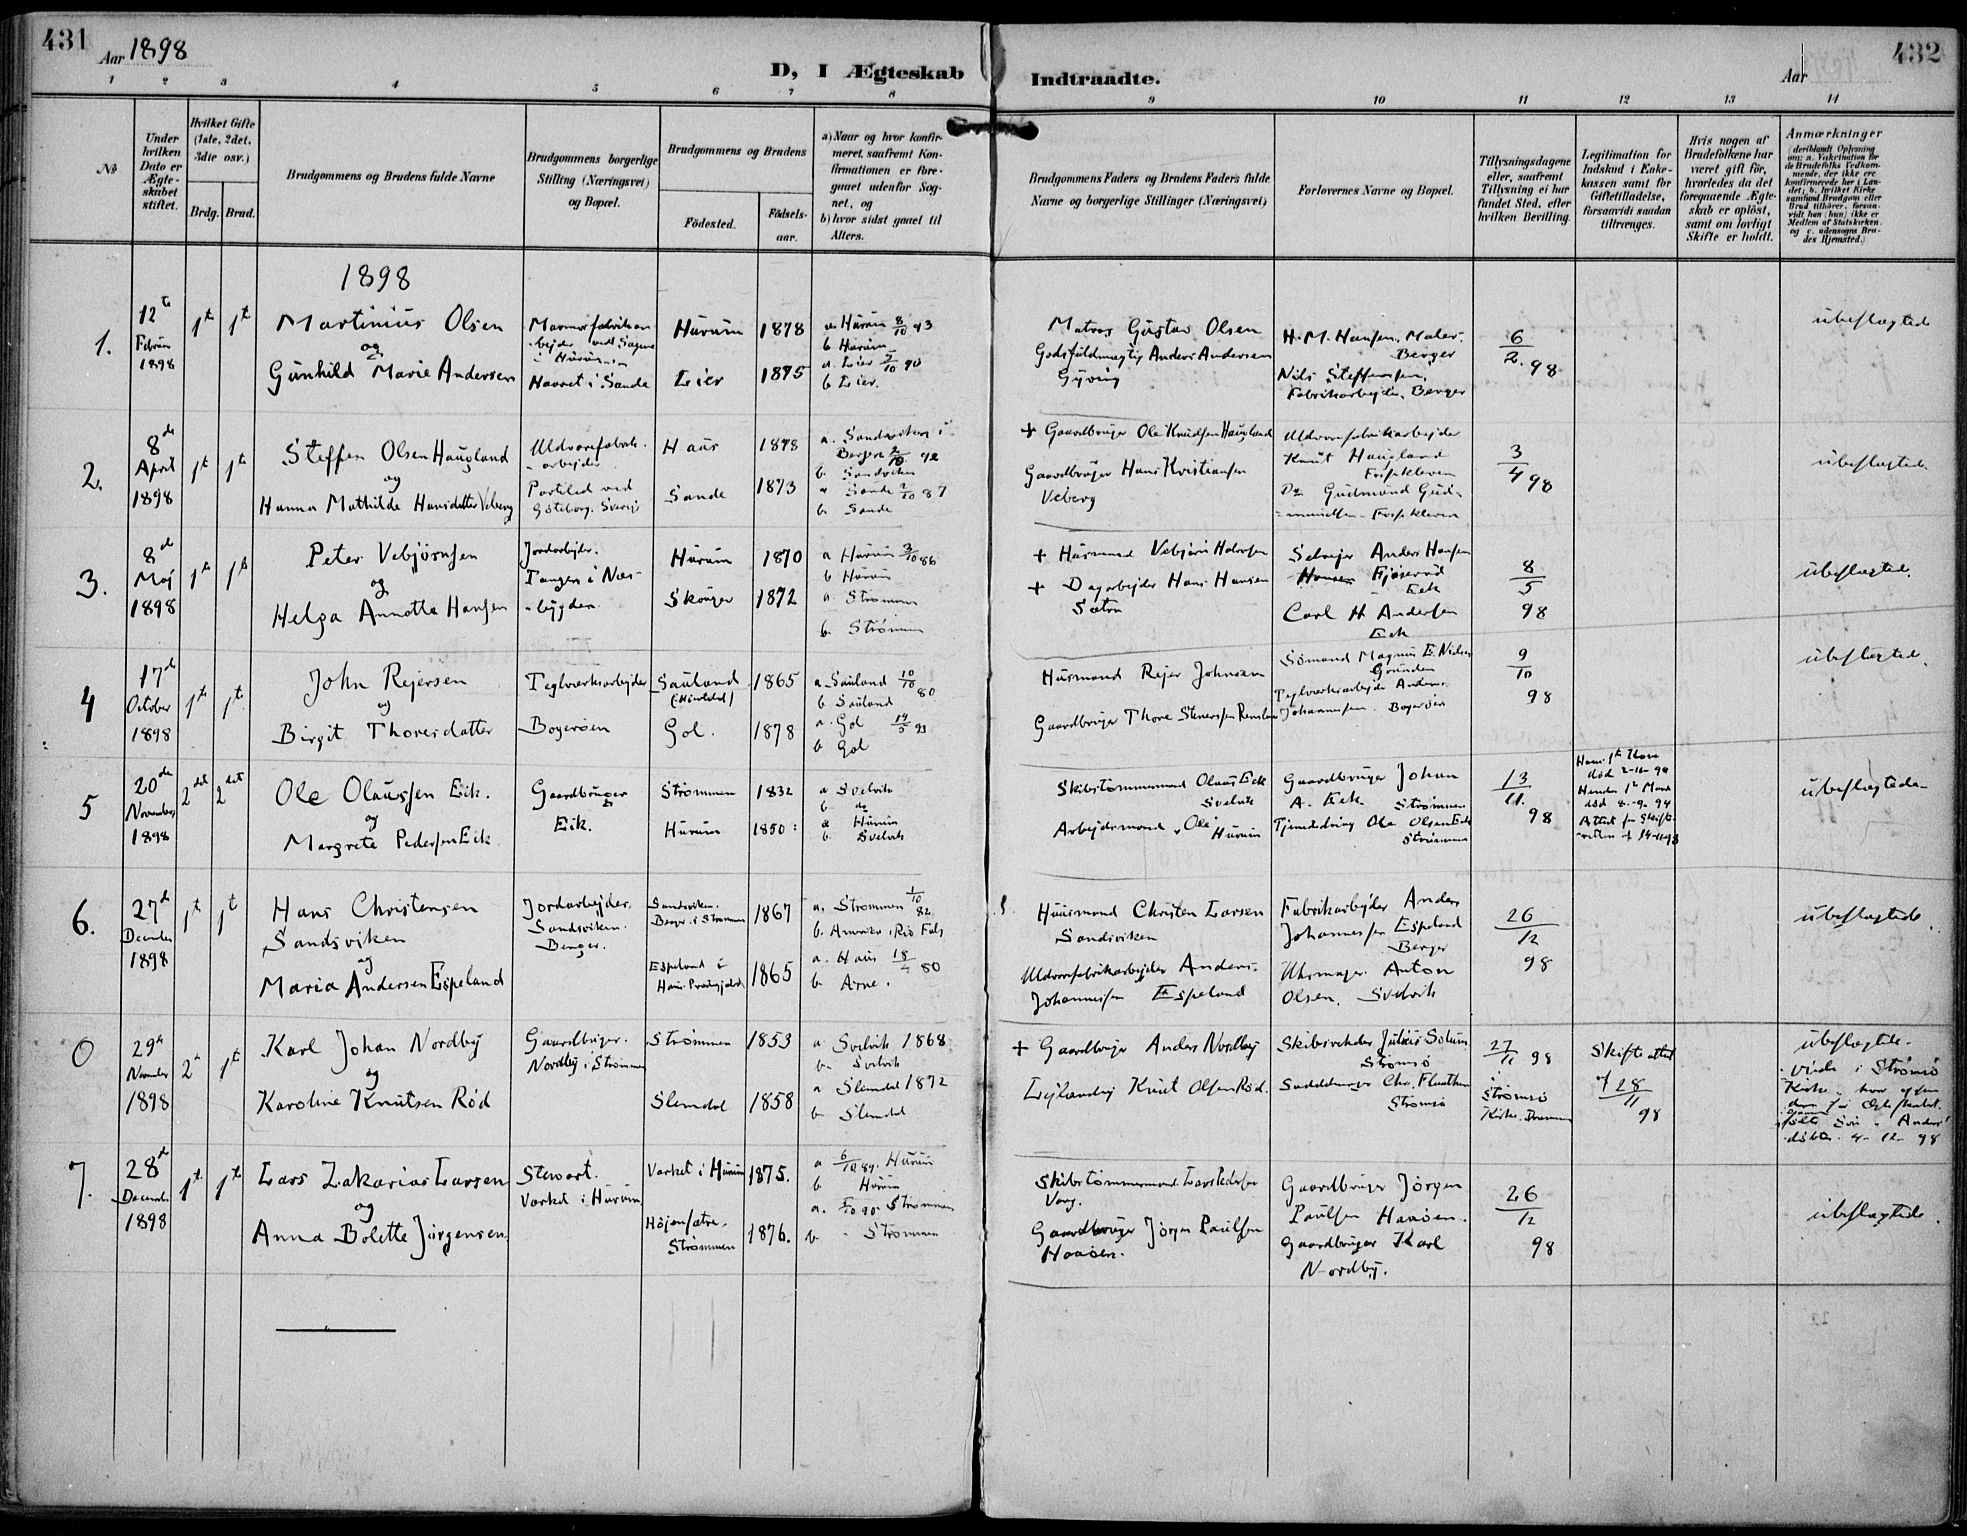 431
Aar 1898
D, I Ægteskab
Indtraadte.
Aar
432
1 2 3 4 5 6 7 8
9 10 11 12 13 14
No
Under
hvilken
Dato er
Ægte-
skabet
stiftet.
Hvilket Gifte
(1ste, 2det,
3die osv.)
Brdg. Brud.
Brudgommens og Brudens fulde Navne
Brudgommens borgerlige
Stilling (Næringsvei)
og Bopæl.
Brudgommens og Brudens
Födested.
Födsels-
aar.
a) Naar og hvor konfir-
meret, saafremt Kon-
firmationen er fore-
gaaet udenfor Sog-
net, og
b) hvor sidst gaaet til
Alters.
Brudgommens Faders og Brudens Faders fulde
Navne og borgerlige Stillinger (Næringsvei)
Forlovernes Navne og Bopæl.
Tillysningsdagene
eller, saafremt
Tillysning ei har
fundet Sted, efter
hvilken Bevilling.
Legitimation for
Indskud i Enke-
kassen samt for
Giftetilladelse,
forsaavidt saadan
tiltrænges.
Hvis nogen af
Brudefolkene har
været gift för,
hvorledes da det
foregaaende Ægte-
skab er oplöst,
samt om lovligt
Skifte er holdt.
Anmærkninger
(deriblandt Oplysning
om: a. Vakcination for
de Brudefolks Vedkom-
mende, der ikke ere
konfirmerede her i Lan-
det; b. hvilket Kirke-
samfund Brudgom eller
Brud tilhörer, forsaa-
vidt han (hun) ikke er
Medlem af Statskirken,
og c. udensogns Bru-
des Hjemsted.)
1898
1.
12te
Februar
1898
1ste 1ste
Martinius Olsen
og
Gunhild Marie Andersen
Havret i Sande
Hurum 1878
Lier 1875
a. Hurum 8/10 93
b Hurum
a. Lier 5/10 90
b Lier.
Matros Gustav Olsen
Godsfuldmægtig Anders Andersen
Gyving
H. M. Hansen, Maler.
Berger
Nils Steffensen,
Fabrikarbejder, Berger
6/2. 98
ubeslægtede
2.
8de
April
1898
1ste 1ste
Steffen Olsen Haugland
og
Hanna Mathilde Hansdatter Veberg
Uldvarefabrik-
-arbejder
Partiled ved
Göteborg, Sverige
Haus 1878
Sande 1873
a. Sandviken i
Bergen 2/10 92
b. Sandviken
a Sande 2/10 87
b. Sande
+ Gaardbruger Ole Knudsen Haugland
Gaardbruger Hans Kristiansen
Veberg
Uldvarefabrikarbejder
Knut Haugland
Fossekleven
Do Gudmund Gud-
-mundsen Fossekleven
3/4 98
ubeslægtede
3.
8de
Maj
1898
1ste 1ste
Peter Vebjørnsen
og
Helga Annette Hansen
Jordarbejder.
Tangen i Næs-
-bygden.
Hurum 1870
Skouger 1872
a Hurum 3/10 86
b Hurum
a. Strømmen
b. Strømmen
+ Husmand Vebjørn Halvorsen
+ Dagarbejder Hans Hansen
Sætre
Selvejer Anders Hansen
Eek
Carl H. Andersen
Eek
8/5
98
ubeslægtede.
4
17de
October
1898
1ste 1ste
John Rejersen
og
Birgit Thoresdatter
Teglværksarbejder
Bogerøen
Sauland 1865
(Hjartdal)
Gol. 1878
a. Sauland 10/10 80
b. Sauland
a. Gol 14/5 93
b Gol
Husmand Rejer Johnsen
Gaardbruger Thore Stenersen
Sömand Magnus E. Nielsen
Grunden
Teglværksarbejder Anders
Johannesen. Bogerøen
9/10
98
ubeslægtede.
5
20de
November
1898
2det 2det
Ole Olaussen Eik.
og
Margrete Pedersen Eik
Gaardbruger
Eik.
Strømmen 1832
Hurum 1850
a Svelvik
b do
a Hurum
b. Svelvik
Skibstømmermand Olaus Eek
Svelvik
Arbejdsmand Ole
Hurum
Gaardbruger Johan
A. Eek Strømmen
Tjenestedreng Ole Olsen Eek
Strømmen
13/11.
98
død 2-12-94
død 8-9-94
Attest fra Skifte-
-retten af 14-11-98
ubeslægtede
6.
27de
December
1898
1ste 1ste
Hans Christensen
Sandsviken
og
Maria Andersen Espeland
Jordarbejder.
Sandsviken.
Berger.
Sandsviken.
Berger i Strømmen 1867
Espeland i
Haus Præstegjæld 1865
a. Strømmen 1/10 82
b. Amerika, Rio Fals
a. Haus 18/4 80
b. Arne.
Husmand Christen Larsen
Sandsviken
Uldvarefabrikarbejder Anders
Johannesen Espeland
Fabrikarbejder Anders
Johannesen Espeland
Berger
Uhrmager Anton
Olsen. Svelvik
26/12
98
ubeslægtede.
0
29de
November
1898
2det 1ste
Karl Johan Nordby
og
Karoline Knutsen Rød
Gaardbruger.
Nordby i Strømmen
Strømmen 1853
Slemdal 1858
a. Svelvik 1868
b. Svelvik
a Slemdal 1872
b. Slemdal
+ Gaardbruger Anders Nordby
Lejlænding Knut Olsen Rød.
Skibsreder Julius Solum
Strømsø
Sadelmager Chr. Flaathen
Strømsø
27/11 98
i
Strømsø
Kirke. Drammen
Skifteattest
af 28/11
98
ubeslægtede.
viede i Strømsø
Kirke,
døbtes 4-12-98
7.
28de
December
1898
1ste 1ste
Lars Zakarias Larsen
og
Anna Bolette Jørgensen.
Stewart.
Værket i Hurum
Værket i Hurum 1875.
Højensætre.
Strømmen 1876.
a 6/10 89. Hurum
b Hurum
a. 5/10 90 Strømmen
b. Strømmen
Skibstømmermand Lars Pedersen
Gaardbruger Jørgen Paulsen
Haaøen.
Gaardbruger Jørgen
Paulsen Haaøen.
Gaardbruger Karl
Nordby.
26/12
98
ubeslægtede.